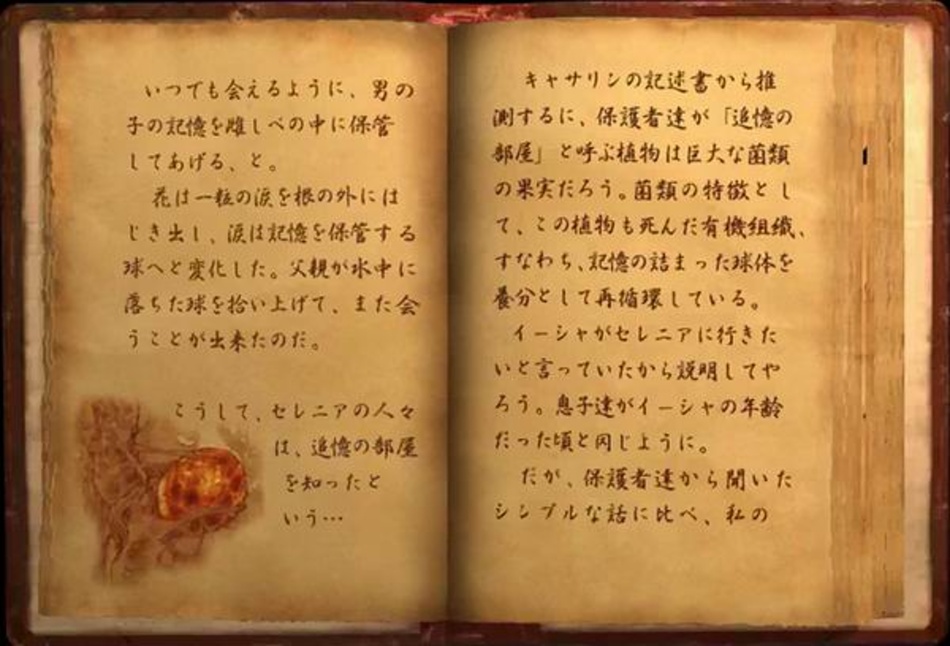 いつでも会えるように、男の
子の記憶を雌しべの中に保管
してあげる、と。
花は一粒の涙を根の外には
じき出し、涙は記憶を保管する
球へと変化した。父親が水中に
落ちた球を拾い上げて、また会
うことが出来たのだ。
こうして、セレニアの人々
は、追憶の部屋
を知ったと
いう…
キャサリンの記述書から推
測するに、保護者達が「追憶の
部屋」と呼ぶ植物は巨大な菌類
の果実だろう。菌類の特徴とし
て、この植物も死んだ有機組織、
すなわち、記憶の詰まった球体を
養分として再循環している。
イーシャがセレニアに行きた
いと言っていたから説明してや
ろう。息子達がイーシャの年齢
だった頃と同じように。
だが、保護者達から聞いた
シンプルな話に比べ、私の